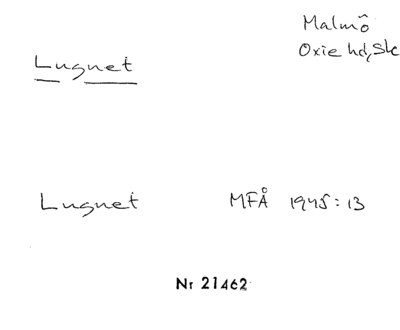 Malmö
Oxie hd, Sk
Lugnet
Lugnet MFÅ 1945:13
Nr 21462